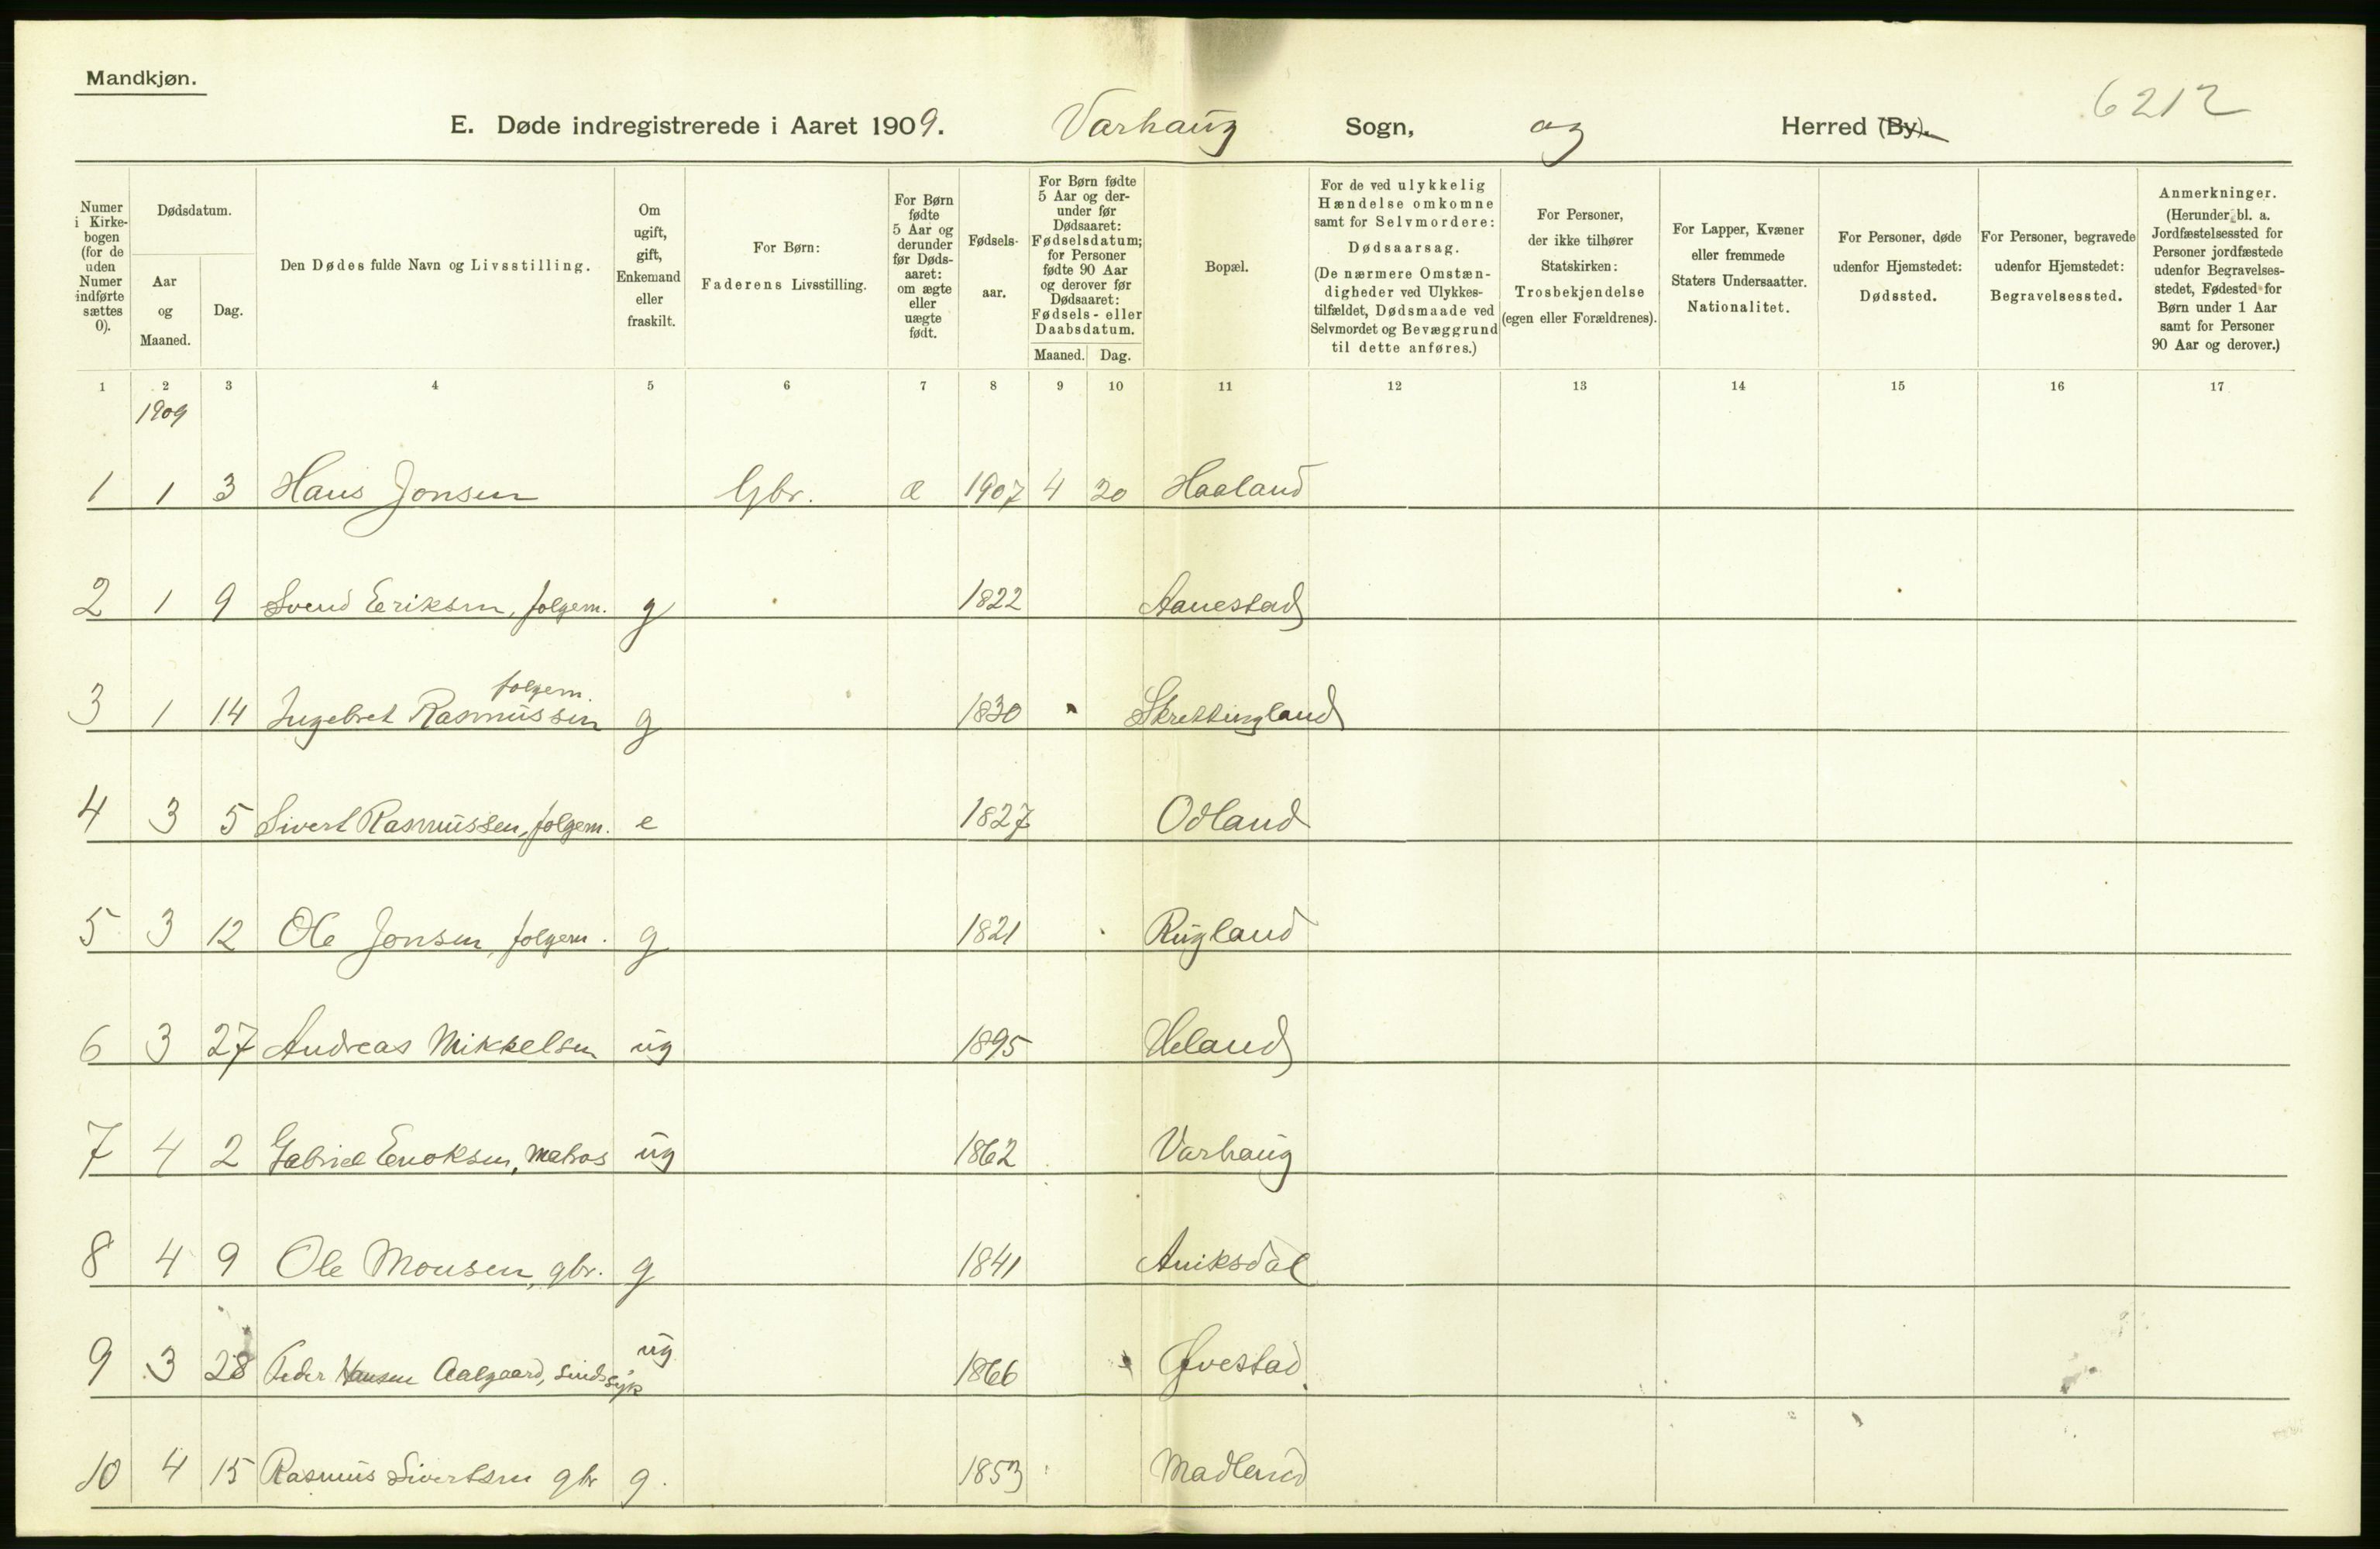 Mandkjøn.
6212
E. Døde indregistrerede i Aaret 1909. Varhaug Sogn, og Herred (By).
Numer i Kirkebogen (for de uden Numer indførte sættes 0).
Dødsdatum.
Aar og Maaned.
Dag.
Den Dødes fulde Navn og Livsstilling.
Om ugift, gift, Enkemand eller fraskilt.
For Børn: Faderens Livsstilling.
For Børn fødte 5 Aar og derunder før Dødsaaret: om ægte eller uægte født.
Fødselsaar.
For Børn fødte 5 Aar og derunder før Dødsaaret: Fødselsdatum; for Personer fødte 90 Aar og derover før Dødsaaret: Fødsels- eller Daabsdatum.
Maaned. Dag.
Bopæl.
For de ved ulykkelig Hændelse omkomne samt for Selvmordere: Dødsaarsag. (De nærmere Omstændigheder ved Ulykkestilfældet, Dødsmaade ved Selvmordet og Bevæggrund til dette anføres.)
For Personer, der ikke tilhører Statskirken: Trosbekjendelse (egen eller Forældrenes).
For Lapper, Kvæner eller fremmede Staters Undersaatter. Nationalitet.
For Personer, døde udenfor Hjemstedet: Dødssted.
For Personer, begravede udenfor Hjemstedet: Begravelsessted.
Anmerkninger. (Herunder bl. a. Jordfæstelsessted for Personer jordfæstede udenfor Begravelsesstedet, Fødested for Børn under 1 Aar samt for Personer 90 Aar og derover.)
1 2 3 4 5 6 7 8 9 10 11 12 13 14 15 16 17
1909
1 1 3 Hans Jonsen Gbr. æ 1907 4 20 Haaland
2 1 9 Svend Eriksen, folgem. g 1822 Aanestad
3 1 14 Ingebret Rasmussen folgem. g 1830 Skrettingland
4 3 5 Sivert Rasmussen, folgem. e 1827 Odland
5 3 12 Ole Jonsen, folgem. g 1821 Rugland
6 3 27 Andreas Mikkelsen ug 1895 Heland
7 4 2 Gabriel Enoksen, matros ug 1862 Varhaug
8 4 9 Ole Monsen, gbr. g 1841 Aniksdal
9 3 28 Peder Hansen Aalgaard, sindssyk ug 1866
10 4 15 Rasmus Sivertsen gbr g. 1853 Madland